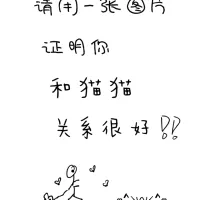 请用一张图片
证明你
和猫猫
关系很好!!